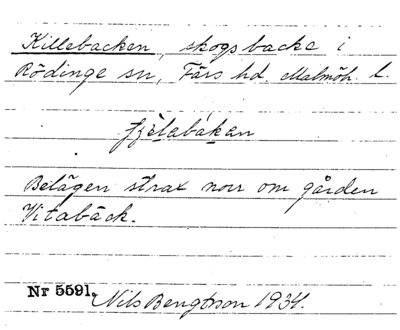 Killebacken, skogsbacke i
Rödinge sn, Färs hd. Malmöh. l.
fjèlabákan
Belägen strax norr om gården
Vitabäck.
Nr 5591, Nils Bengtson 1934.